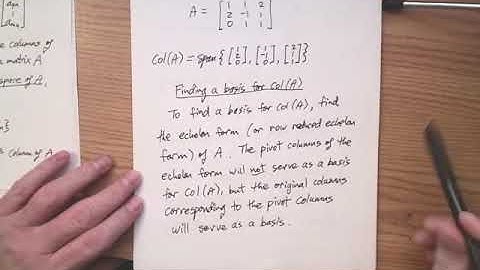 A = [ 1 1 2
2 -1 1
0 1 1 ]
Col(A) = span{ [ 1 2 0 ], [ 1 -1 1 ], [ 2 1 1 ] }
Finding a basis for Col(A)
To find a basis for Col(A), find
the echelon form (or row reduced echelon
form) of A. The pivot columns of the
echelon form will not serve as a basis
for Col(A), but the original columns
corresponding to the pivot columns
will serve as a basis.
columns of
matrix A
space of A,
columns of A